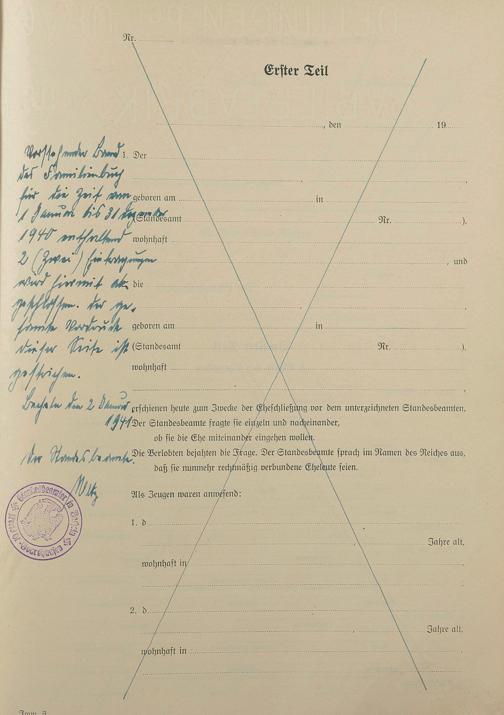 Nr.
Erster Teil
, den 19
Vorstehender Band
1. Der
des Familienbuch
für die Zeit vom
geboren am in
1 Januar bis 31 Dezember
(Standesamt Nr. ).
1940 enthaltend
wohnhaft
2 (Zwei) Eintragungen
, und
wird hiermit ab-
die
geschlossen. Der ge-
samte Vordruck
geboren am in
dieser Seite ist
(Standesamt Nr. ).
gestrichen.
wohnhaft
Becheln den 2 Januar
1941
erschienen heute zum Zwecke der Eheschließung vor dem unterzeichneten Standesbeamten.
Der Standesbeamte fragte sie einzeln und nacheinander,
ob sie die Ehe miteinander eingehen wollen.
Der Standesbeamte.
Die Verlobten bejahten die Frage. Der Standesbeamte sprach im Namen des Reiches aus,
daß sie nunmehr rechtmäßig verbundene Eheleute seien.
Als Zeugen waren anwesend:
1. d
Jahre alt,
wohnhaft in
2. d
Jahre alt,
wohnhaft in